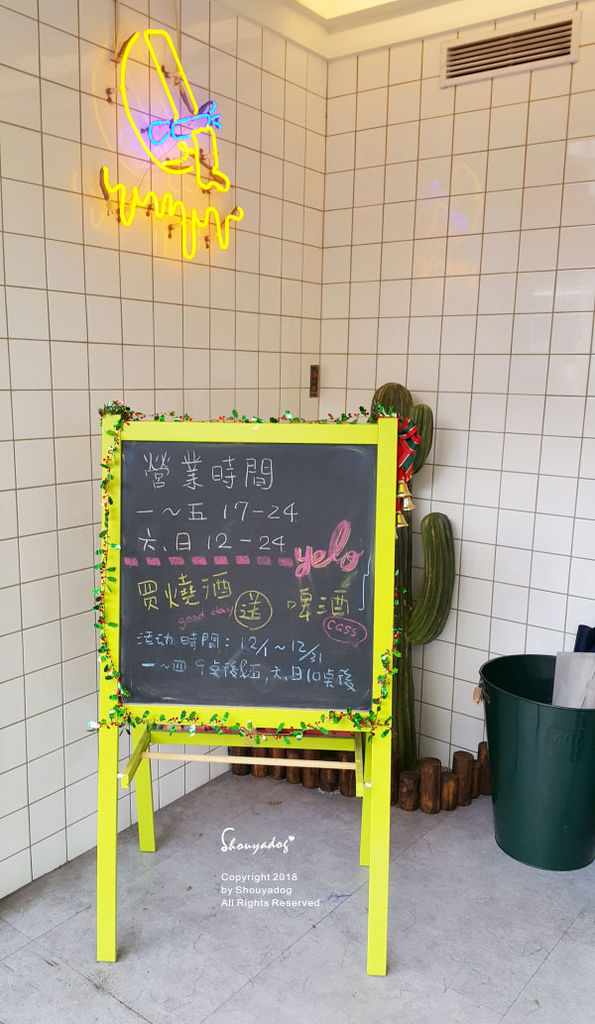 營業時間
一～五 17-24
六、日 12-24
yelo
買燒酒 送 啤酒
good day
cass
活动時間：12/1～12/31
一～四 9桌後&五,六、日10桌後
Shouyadog
Copyright 2018
by Shouyadog
All Rights Reserved.